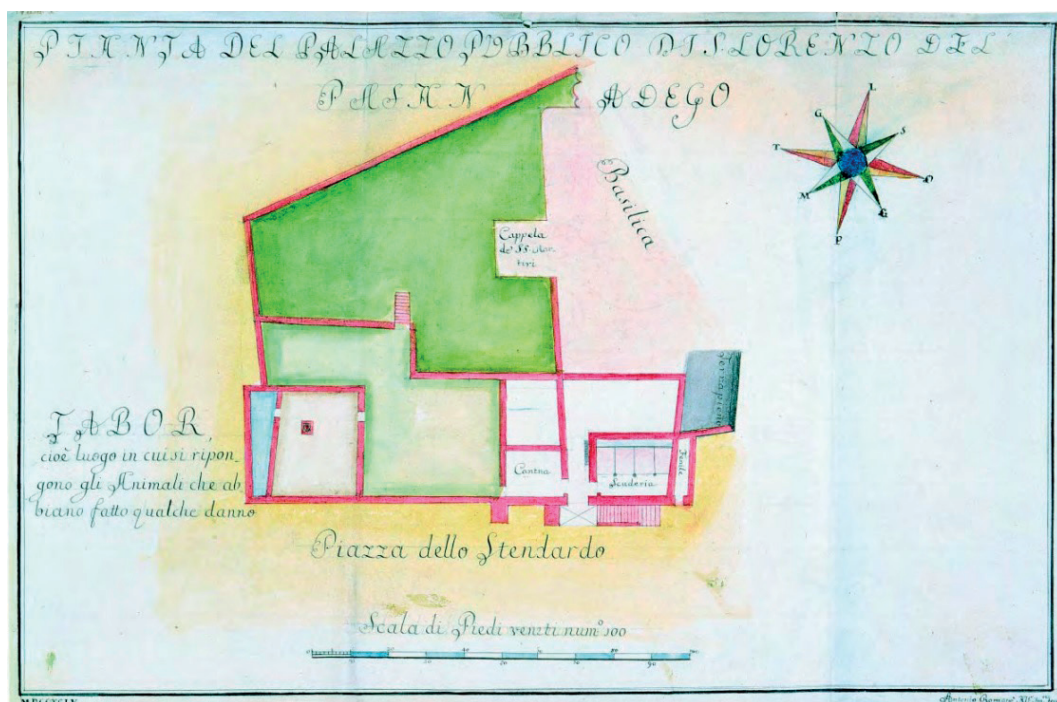 PIANTA DEL PALAZZO PUBBLICO DI S. LORENZO DEL
PASAN ADEGO
L
G
S
T
O
M
G
P
Basilica
Cappela
de' SS. Mar-
tiri
Torrapieno
TABOR,
cioè luogo in cui si ripon-
gono gli Animali che ab
biano fatto qualche danno
Cantina
Scuderia
Fenile
Piazza dello Stendardo
Scala di Piedi veneti num.º 100
Antonio